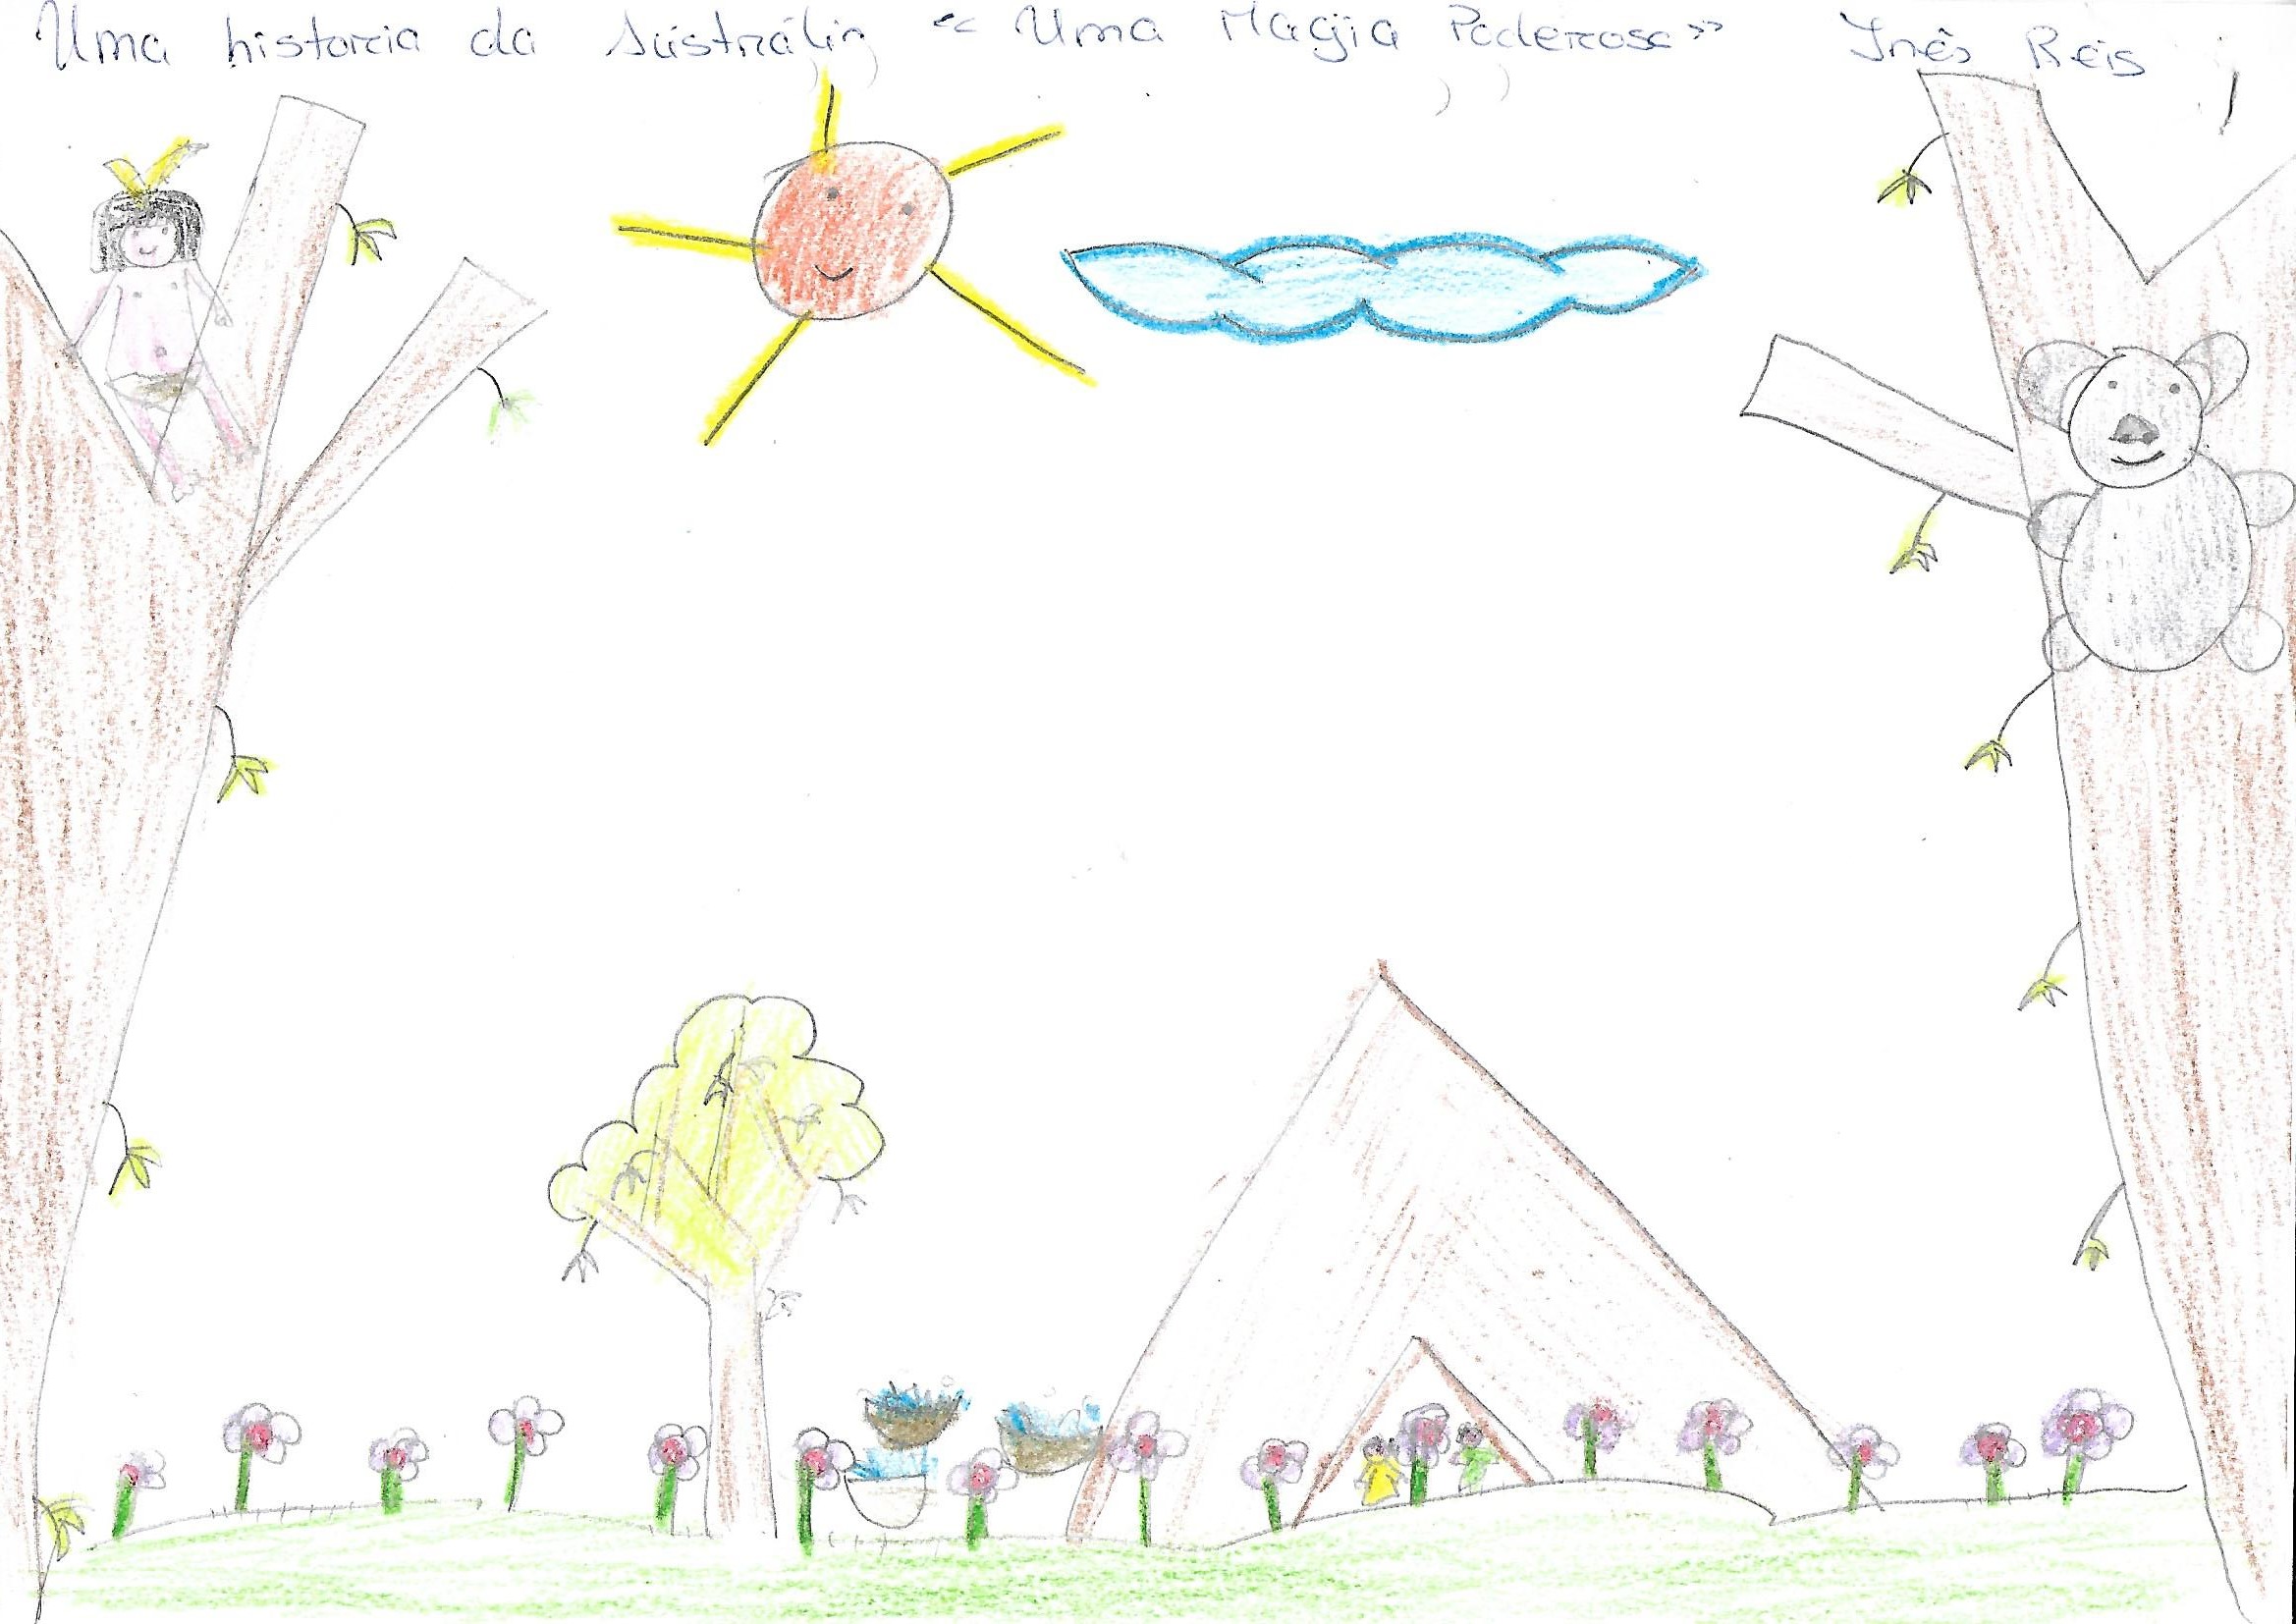 Uma historia da Austrália « Uma Magia Poderosa » Inês Reis